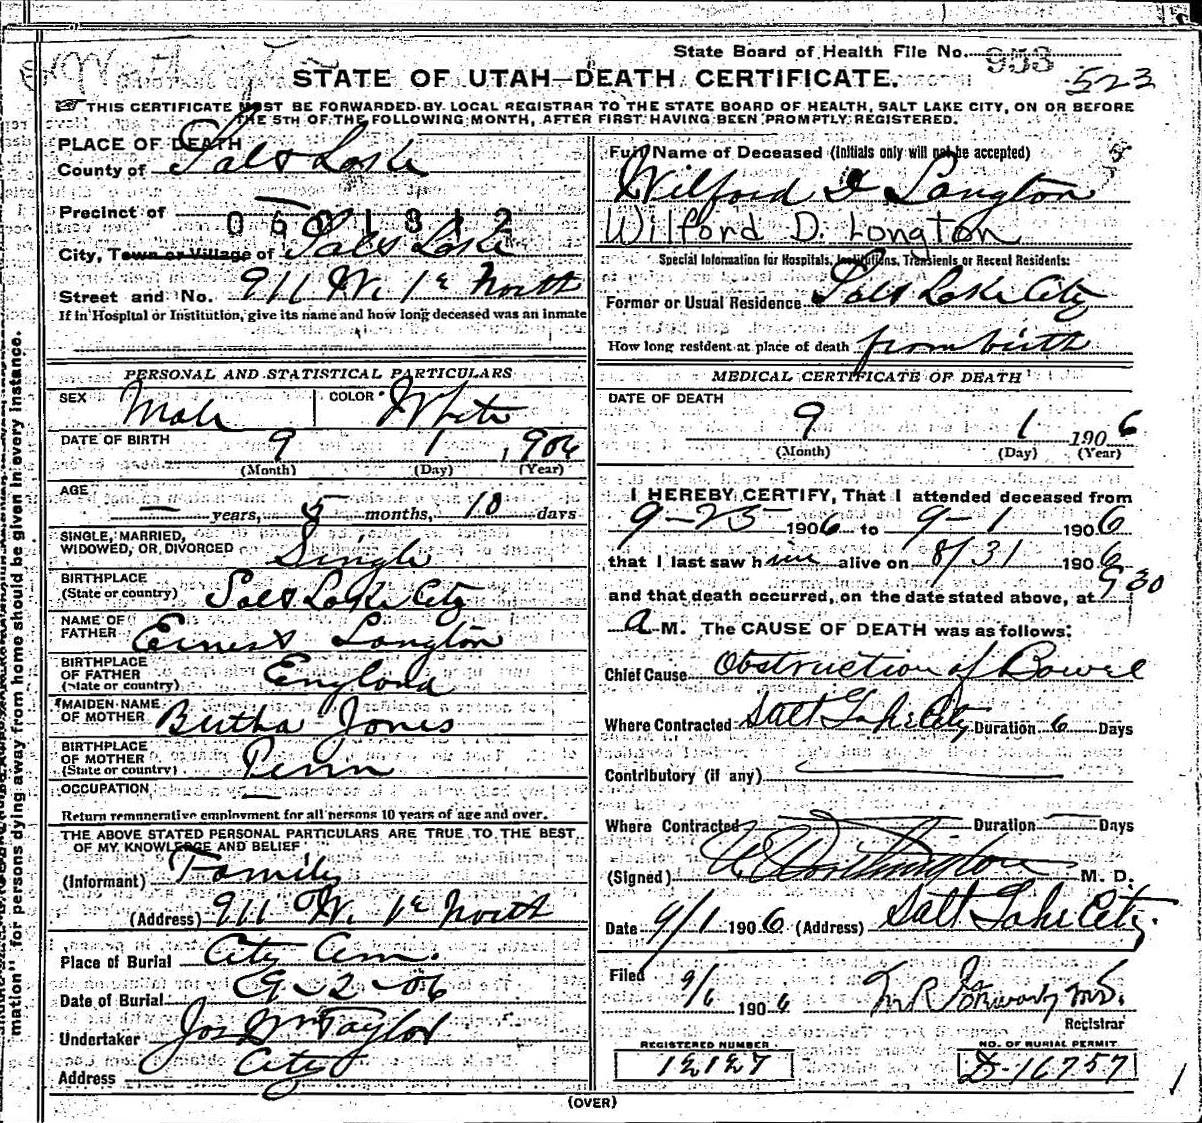 Worthington
State Board of Health File No. 953
523
STATE OF UTAH—DEATH CERTIFICATE.
THIS CERTIFICATE MUST BE FORWARDED BY LOCAL REGISTRAR TO THE STATE BOARD OF HEALTH, SALT LAKE CITY, ON OR BEFORE
THE 5TH OF THE FOLLOWING MONTH, AFTER FIRST HAVING BEEN PROMPTLY REGISTERED.
PLACE OF DEATH
County of Salt Lake
Precinct of —
0601312
City, Town or Village of Salt Lake
Street and No. 911 W. 1st North
If in Hospital or Institution, give its name and how long deceased was an inmate
PERSONAL AND STATISTICAL PARTICULARS
SEX Male COLOR White
DATE OF BIRTH 9 1 1906
(Month) (Day) (Year)
AGE
— years, 5 months, 10 days
SINGLE, MARRIED,
WIDOWED, OR DIVORCED Single
BIRTHPLACE
(State or country) Salt Lake City
NAME OF
FATHER Ernest Langton
BIRTHPLACE
OF FATHER
(State or country) England
MAIDEN NAME
OF MOTHER Bertha Jones
BIRTHPLACE
OF MOTHER
(State or country) Penn
OCCUPATION —
Return remunerative employment for all persons 10 years of age and over.
THE ABOVE STATED PERSONAL PARTICULARS ARE TRUE TO THE BEST
OF MY KNOWLEDGE AND BELIEF
(Informant) Family
(Address) 911 W. 1st North
Place of Burial City Cem.
Date of Burial 9-2-06
Undertaker Jos Wm Taylor
Address City
Full Name of Deceased (Initials only will not be accepted)
Wilford D Langton
Wilford D. Longton
Special Information for Hospitals, Institutions, Transients or Recent Residents:
Former or Usual Residence Salt Lake City
How long resident at place of death from birth
MEDICAL CERTIFICATE OF DEATH
DATE OF DEATH
9 1 1906
(Month) (Day) (Year)
I HEREBY CERTIFY, That I attended deceased from
9-25 1906 to 9-1 1906
that I last saw him alive on 8/31 1906
and that death occurred, on the date stated above, at 9 30
A M. The CAUSE OF DEATH was as follows:
Chief Cause Obstruction of Bowel
Where Contracted Salt Lake City Duration 6 Days
Contributory (if any) —
Where Contracted — Duration — Days
(Signed) Worthington M. D.
Date 9/1 1906 (Address) Salt Lake City.
Filed 9/6 1906
Registrar
REGISTERED NUMBER
12127
NO. OF BURIAL PERMIT
D-16757
(OVER)
mation" for persons dying away from home should be given in every instance.